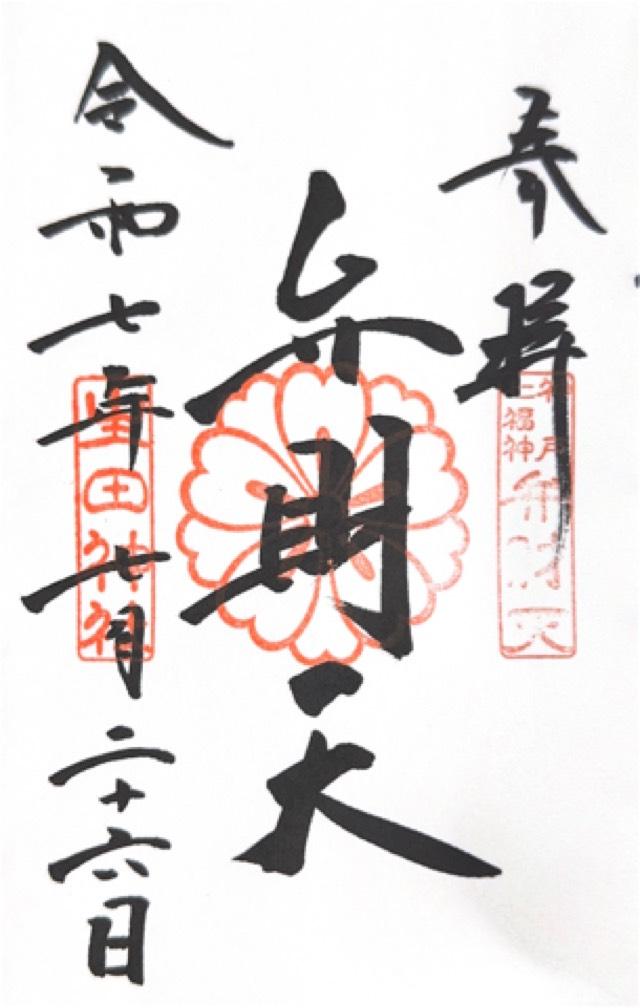 奉拝
神戸
七福神
弁財天
弁財天
令和七年七月二十六日
生田神社